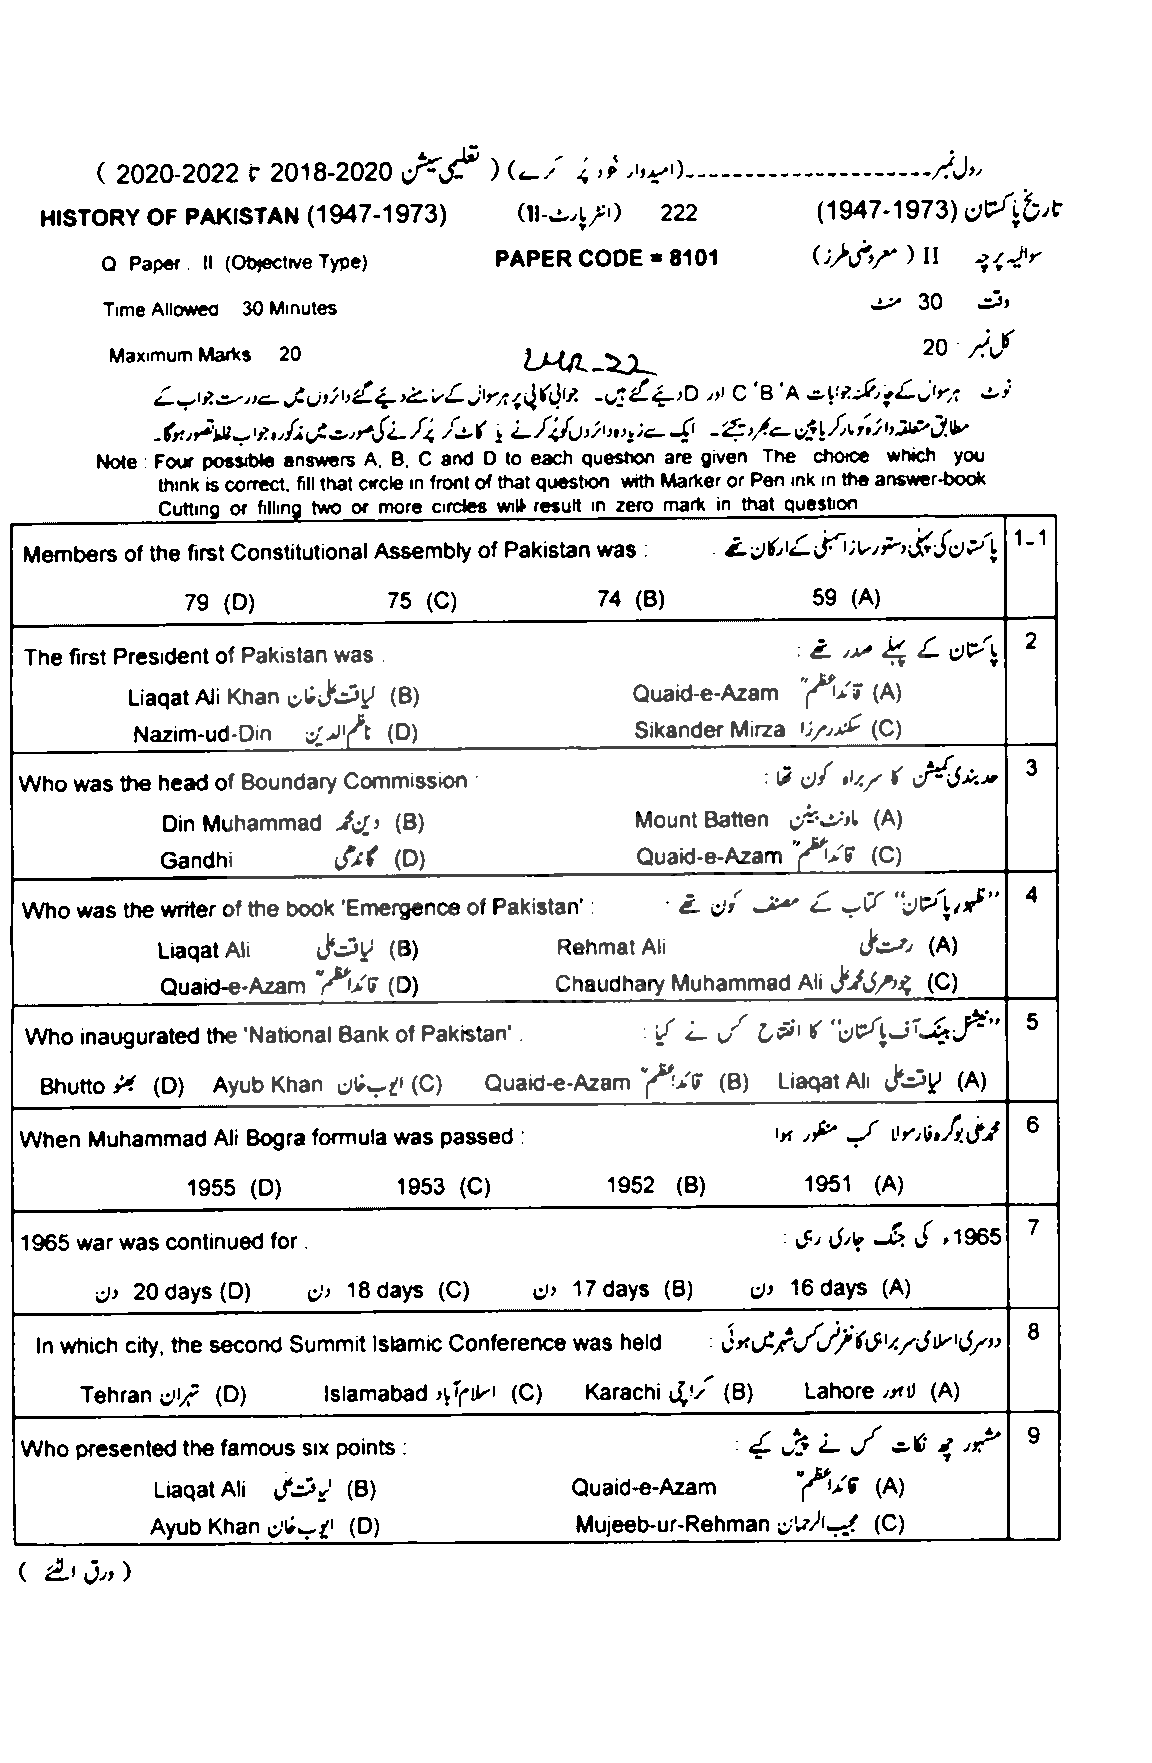 رول نمبر-----------------------(امیدوار خود پُر کرے) ( تعلیمی سیشن 2020-2018 تا 2022-2020 )
HISTORY OF PAKISTAN (1947-1973) (انٹر پارٹ-II) 222 تاریخ پاکستان (1947-1973)
Q Paper . II (Objective Type) PAPER CODE = 8101 سوالیہ پرچہ II ( معروضی طرز )
Time Allowed 30 Minutes وقت 30 منٹ
Maximum Marks 20 LHR-22 کل نمبر 20
نوٹ ہر سوال کے چار ممکنہ جوابات C 'B 'A اور D دیے گئے ہیں۔ جوابی کاپی پر ہر سوال کے سامنے دیے گئے دائروں میں سے درست جواب کے
مطابق متعلقہ دائرہ کو مارکر یا پین سے بھر دیجئے۔ ایک سے زیادہ دائروں کو پُر کرنے یا کاٹ کر پُر کرنے کی صورت میں مذکورہ جواب غلط تصور ہوگا۔
Note : Four possible answers A, B, C and D to each question are given The choice which you
think is correct, fill that circle in front of that question with Marker or Pen ink in the answer-book
Cutting or filling two or more circles will result in zero mark in that question
Members of the first Constitutional Assembly of Pakistan was : پاکستان کی پہلی دستور ساز اسمبلی کے ارکان تھے 1-1
79 (D) 75 (C) 74 (B) 59 (A)
The first President of Pakistan was . پاکستان کے پہلے صدر تھے : 2
Liaqat Ali Khan لیاقت علی خان (B) Quaid-e-Azam قائداعظمؒ (A)
Nazim-ud-Din ناظم الدین (D) Sikander Mirza سکندر مرزا (C)
Who was the head of Boundary Commission : حد بندی کمیشن کا سربراہ کون تھا : 3
Din Muhammad دین محمد (B) Mount Batten ماؤنٹ بیٹن (A)
Gandhi گاندھی (D) Quaid-e-Azam قائداعظمؒ (C)
Who was the writer of the book 'Emergence of Pakistan' : "ظہور پاکستان" کتاب کے مصنف کون تھے . 4
Liaqat Ali لیاقت علی (B) Rehmat Ali رحمت علی (A)
Quaid-e-Azam قائداعظمؒ (D) Chaudhary Muhammad Ali چودھری محمد علی (C)
Who inaugurated the 'National Bank of Pakistan' . "نیشنل بینک آف پاکستان" کا افتتاح کس نے کیا : 5
Bhutto بھٹو (D) Ayub Khan ایوب خان (C) Quaid-e-Azam قائداعظمؒ (B) Liaqat Ali لیاقت علی (A)
When Muhammad Ali Bogra formula was passed : محمد علی بوگرہ فارمولا کب منظور ہوا 6
1955 (D) 1953 (C) 1952 (B) 1951 (A)
1965 war was continued for . 1965ء کی جنگ جاری رہی : 7
20 days دن (D) 18 days دن (C) 17 days دن (B) 16 days دن (A)
In which city, the second Summit Islamic Conference was held دوسری اسلامی سربراہی کانفرنس کس شہر میں ہوئی : 8
Tehran تہران (D) Islamabad اسلام آباد (C) Karachi کراچی (B) Lahore لاہور (A)
Who presented the famous six points : مشہور چھ نکات کس نے پیش کیے : 9
Liaqat Ali لیاقت علی (B) Quaid-e-Azam قائداعظمؒ (A)
Ayub Khan ایوب خان (D) Mujeeb-ur-Rehman مجیب الرحمان (C)
( ورق الٹئے )